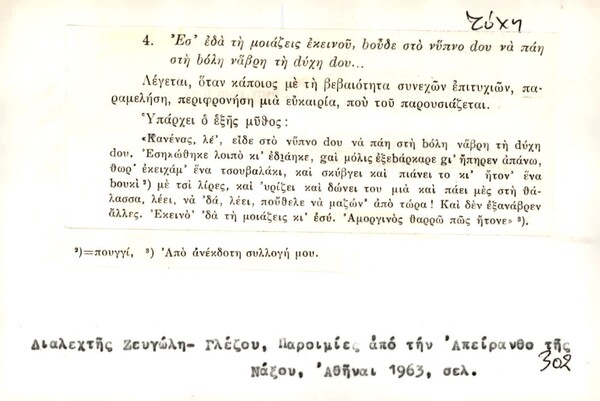 Τύχη
4. Ἐσ' ἐδὰ τὴ μοιάζεις ἐκεινοῦ, bοῦδε στὸ νῦπνο dου νὰ πάη
στὴ βόλη νἄβρη τὴ dύχη dου...
Λέγεται, ὅταν κάποιος μὲ τὴ βεβαιότητα συνεχῶν ἐπιτυχιῶν, πα-
ραμελήση, περιφρονήση μιὰ εὐκαιρία, ποὺ τοῦ παρουσιάζεται.
Ὑπάρχει ὁ ἑξῆς μῦθος:
«Κανένας, λέ', εἶδε στὸ νῦπνο dου νὰ πάη στὴ βόλη νἄβρη τὴ dύχη
dου. Ἐσηκώθηκε λοιπὸ κι' ἐδιάηκε, gαὶ μόλις ἐξεbάρκαρε gι' ἤπηρεν ἀπάνω,
θωρ' ἐκειχάμ' ἕνα τσουβαλάκι, καὶ σκύβγει καὶ πιάνει το κι' ἦτον' ἕνα
bουκὶ ²) μὲ τσὶ λίρες, καὶ 'υρίζει καὶ δώνει του μιὰ καὶ πάει μὲς στὴ θά-
λασσα, λέει, νὰ 'δά, λέει, ποὔθελε νὰ μαζών' ἀπὸ τώρα! Καὶ δὲν ἐξανάβρεν
ἄλλες. Ἐκεινὸ 'δὰ τὴ μοιάζεις κι' ἐσύ. Ἀμοργινὸς θαρρῶ πῶς ἤτονε» ³).
²)=πουγγί, ³) Ἀπὸ ἀνέκδοτη συλλογή μου.
Διαλεχτῆς Ζευγώλη- Γλέζου, Παροιμίες ἀπό τήν Ἀπείρανθο τῆς
Νάξου, Ἀθῆναι 1963, σελ. 302